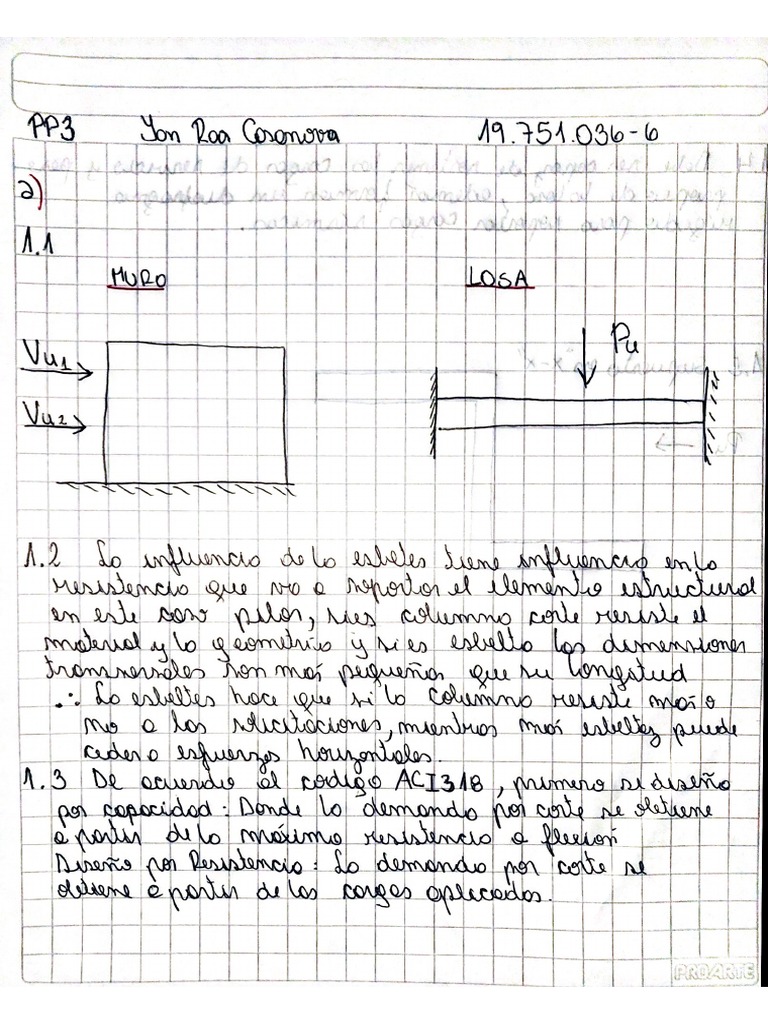 PP3 Yon Roa Casanova 19.751.036-6
a)
1.1
MURO LOSA
Vu1
Pu
Vu2
1.2 La influencia de la esbeltes tiene influencia en la
resistencia que va a soportar el elemento estructural
en este caso pilar, si es columna corte resiste el
material y la geometría y si es esbelta las dimensiones
transversales son más pequeñas que su longitud
∴ La esbeltes hace que si la columna resiste más o
no a las solicitaciones, mientras más esbeltez puede
ceder a esfuerzos horizontales.
1.3 De acuerdo al codigo ACI318, primero se diseña
por capacidad: Donde la demanda por corte se obtiene
a partir de la máxima resistencia a flexión
Diseño por Resistencia: La demanda por corte se
obtiene a partir de las cargas aplicadas.
PROARTE